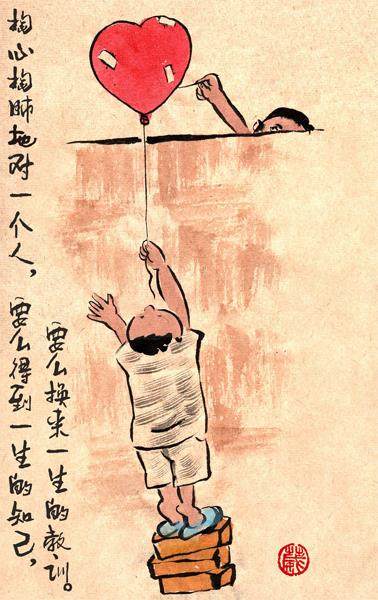 掏心掏肺地对一个人，要么得到一生的知己，
要么换来一生的教训。